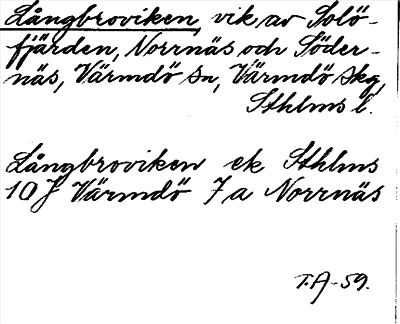 Långbroviken, vik av Solö-
fjärden, Norrnäs och Söder-
näs, Värmdö sn, Värmdö skg,
Sthlms l.
Långbroviken ek Sthlms
10 J Värmdö 7 a Norrnäs
T.A-59.